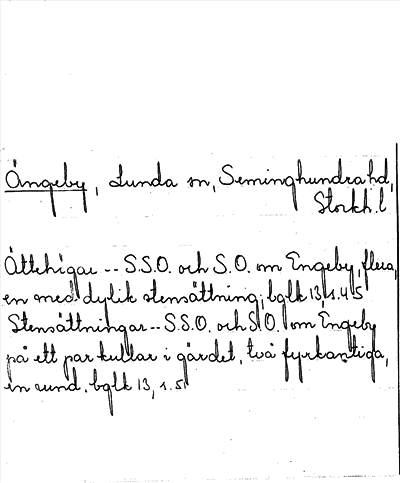 Ängeby, Lunda sn, Seminghundra hd,
Stockh. l
Ättehögar -- S.S.O. och S.O. om Engeby, flera,
en med dylik stensättning; bglk 13, s. 4-5
Stensättningar -- S.S.O. och S.O. om Engeby
på ett par kullar i gärdet, två fyrkantiga,
en rund. bglk 13, s. 5.